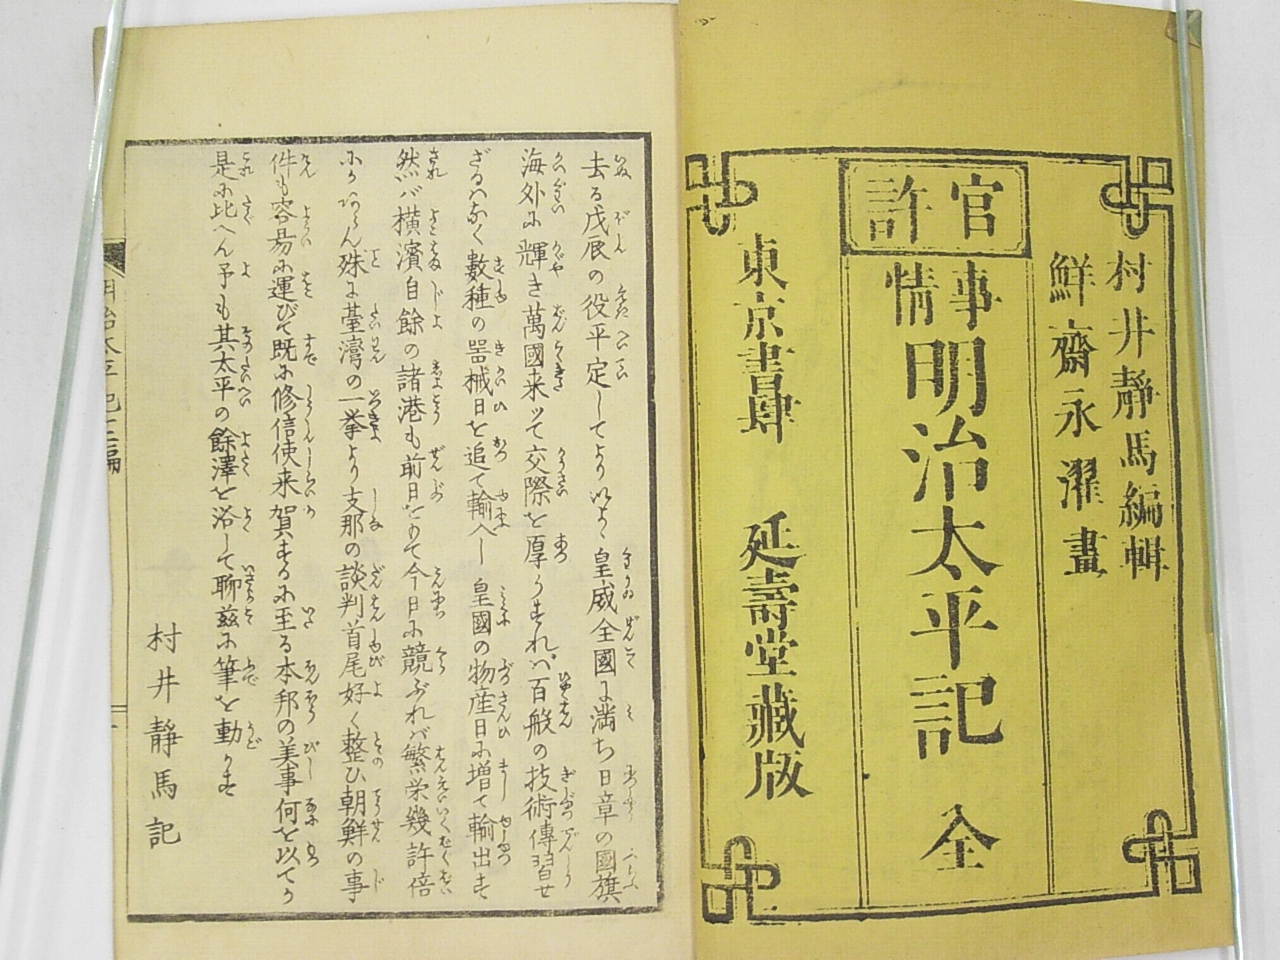 村井靜馬編輯
鮮齋永濯畫
官許
事情
明治太平記 全
東京書肆 延壽堂藏版
去る戊辰の役平定してより以て 皇威全國に満ち日章の國旗
海外に輝き萬國来ツて交際を厚うすれバ百般の技術傳習せ
ざるハなく數種の噐械日を追て輸入し 皇國の物産日に増て輸出す
然バ橫濱自餘の諸港も前日をもて今日に競ぶれバ繁栄幾許倍
にか 殊に臺湾の一挙より支那の談判首尾好く整ひ朝鮮の事
件も容易に運びて既に修信使来賀するに至る本邦の美事何を以てか
是に比へん予も其太平の餘澤を浴して聊茲に筆を動かす
村井靜馬記